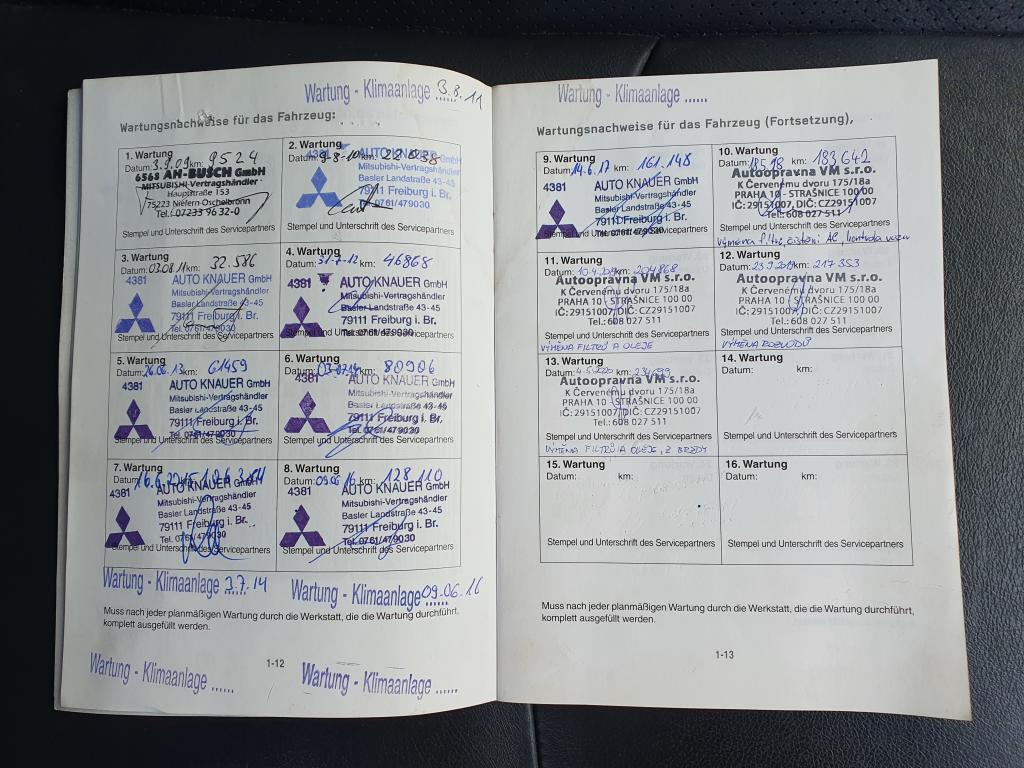 Wartung - Klimaanlage 3.8.11
Wartungsnachweise für das Fahrzeug:
1. Wartung
Datum: 3.9.09 km: 9524
6563 AH-BUSCH GmbH
MITSUBISHI-Vertragshändler
Hauptstraße 153
75223 Niefern-Öschelbronn
Tel.: 07233 9632-0
Stempel und Unterschrift des Servicepartners
2. Wartung
Datum: 9-8-10 km:
4381 AUTO KNAUER GmbH
Mitsubishi-Vertragshändler
Basler Landstraße 43-45
79111 Freiburg i. Br.
Tel. 0761/479030
Stempel und Unterschrift des Servicepartners
3. Wartung
Datum: 03.08.11 km: 32.586
4381 AUTO KNAUER GmbH
Mitsubishi-Vertragshändler
Basler Landstraße 43-45
79111 Freiburg i. Br.
Tel. 0761/479030
Stempel und Unterschrift des Servicepartners
4. Wartung
Datum: 31.7.12 km: 46868
AUTO KNAUER GmbH
Mitsubishi-Vertragshändler
Basler Landstraße 43-45
79111 Freiburg i. Br.
Tel. 0761/479030
Stempel und Unterschrift des Servicepartners
5. Wartung
Datum: 26.06.13 km: 61459
4381 AUTO KNAUER GmbH
Mitsubishi-Vertragshändler
Basler Landstraße 43-45
79111 Freiburg i. Br.
Tel. 0761/479030
Stempel und Unterschrift des Servicepartners
6. Wartung
Datum: 03.07.14 km: 80906
4381 AUTO KNAUER GmbH
Mitsubishi-Vertragshändler
Basler Landstraße 43-45
79111 Freiburg i. Br.
Tel. 0761/479030
Stempel und Unterschrift des Servicepartners
7. Wartung
Datum: 16.6.2015
4381 AUTO KNAUER GmbH
Mitsubishi-Vertragshändler
Basler Landstraße 43-45
79111 Freiburg i. Br.
Tel. 0761/479030
Stempel und Unterschrift des Servicepartners
8. Wartung
Datum: 09.06.16 km: 128 110
4381 AUTO KNAUER GmbH
Mitsubishi-Vertragshändler
Basler Landstraße 43-45
79111 Freiburg i. Br.
Tel. 0761/479030
Stempel und Unterschrift des Servicepartners
Wartung - Klimaanlage 3.7.14
Wartung - Klimaanlage 09.06.16
Muss nach jeder planmäßigen Wartung durch die Werkstatt, die die Wartung durchführt,
komplett ausgefüllt werden.
1-12
Wartung - Klimaanlage ......
Wartung - Klimaanlage ......
Wartung - Klimaanlage ......
Wartungsnachweise für das Fahrzeug (Fortsetzung),
9. Wartung
Datum: 14.6.17 km: 161.148
4381 AUTO KNAUER GmbH
Mitsubishi-Vertragshändler
Basler Landstraße 43-45
79111 Freiburg i. Br.
Tel. 0761/479030
Stempel und Unterschrift des Servicepartners
10. Wartung
Datum: km: 183642
Autoopravna VM s.r.o.
K Červenému dvoru 175/18a
PRAHA 10 - STRAŠNICE 100 00
IČ: 29151007, DIČ: CZ29151007
Tel.: 608 027 511
Stempel und Unterschrift des Servicepartners
VÝMĚNA filtrů, čištění AC, kontrola vozu
11. Wartung
Datum: 10.4.2019 km: 204868
Autoopravna VM s.r.o.
K Červenému dvoru 175/18a
PRAHA 10 - STRAŠNICE 100 00
IČ: 29151007, DIČ: CZ29151007
Tel.: 608 027 511
Stempel und Unterschrift des Servicepartners
VÝMĚNA FILTRŮ A OLEJE
12. Wartung
Datum: 23.9.2019 km: 217353
Autoopravna VM s.r.o.
K Červenému dvoru 175/18a
PRAHA 10 - STRAŠNICE 100 00
IČ: 29151007, DIČ: CZ29151007
Tel.: 608 027 511
Stempel und Unterschrift des Servicepartners
VÝMĚNA ROZVODŮ
13. Wartung
Datum: 4.5.2020 km:
Autoopravna VM s.r.o.
K Červenému dvoru 175/18a
PRAHA 10 - STRAŠNICE 100 00
IČ: 29151007, DIČ: CZ29151007
Tel.: 608 027 511
Stempel und Unterschrift des Servicepartners
VÝMĚNA FILTRŮ A OLEJE, Z BRZDY
14. Wartung
Datum: km:
Stempel und Unterschrift des Servicepartners
15. Wartung
Datum: km:
Stempel und Unterschrift des Servicepartners
16. Wartung
Datum: km:
Stempel und Unterschrift des Servicepartners
Muss nach jeder planmäßigen Wartung durch die Werkstatt, die die Wartung durchführt,
komplett ausgefüllt werden.
1-13